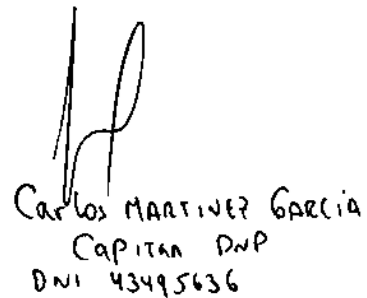 Carlos MARTINEZ GARCIA
CAPITAN DNP
DNI 43495636